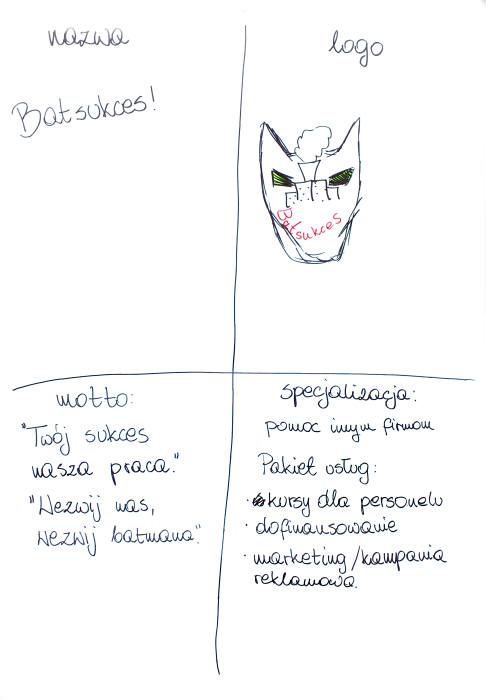 nazwa
Batsukces!
logo
Batsukces
motto:
"Twój sukces
nasza praca."
"Wezwij nas,
wezwij batmana".
specjalizacja:
pomoc innym firmom
Pakiet usług:
· kursy dla personelu
· dofinansowanie
· marketing/kampania
reklamowa.